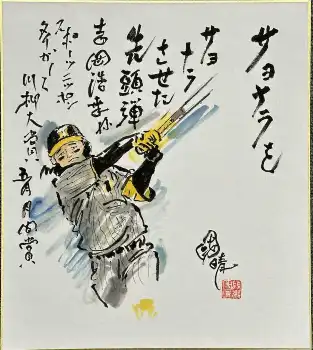 サヨナラを
サヨ
ナラ
させた
先頭弾
スポーツニッポン
タイガース
川柳大賞 五月月間賞